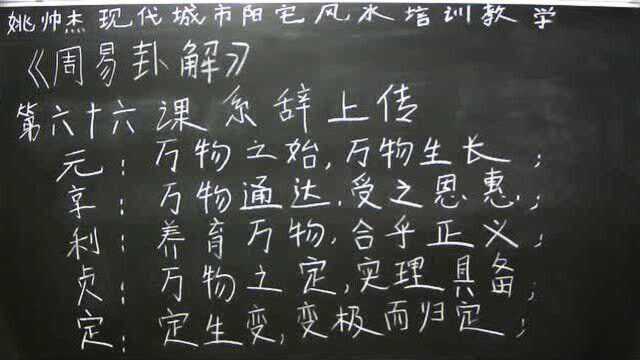 姚帅杰现代城市阳宅风水培训教学
《周易卦解》
第六十六课系辞上传
元：万物之始，万物生长；
享：万物通达，受之恩惠；
利：养育万物，合乎正义；
贞：万物之定，实理具备；
定：定生变，变极而归定；